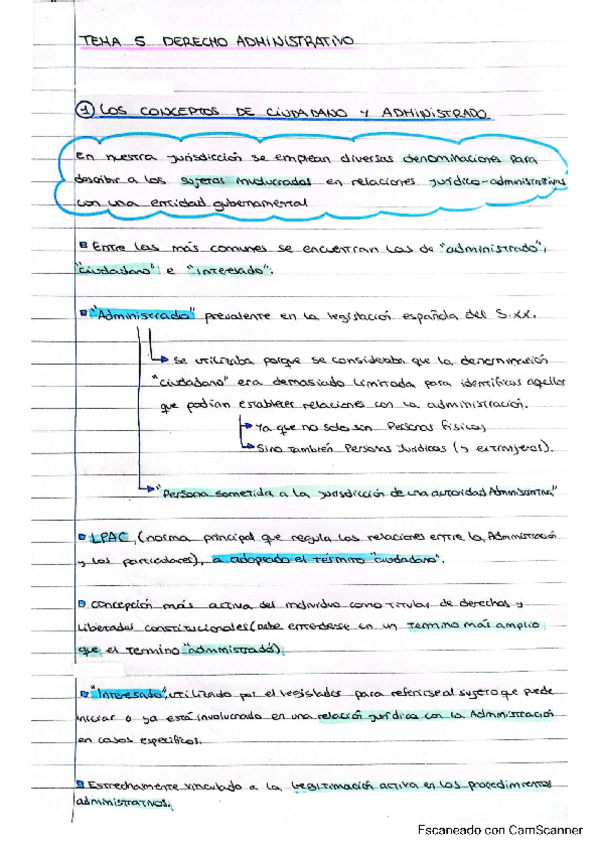 TEMA 5 DERECHO ADMINISTRATIVO
① LOS CONCEPTOS DE CIUDADANO Y ADMINISTRADO
En nuestra jurisdicción se emplean diversas denominaciones para
describir a los sujetos involucrados en relaciones jurídico-administrativas
con una entidad gubernamental
Entre las más comunes se encuentran las de "administrado",
"ciudadano" e "interesado".
"Administrado" prevalente en la legislación española del S.XX.
Se utilizaba porque se consideraba que la denominación
"ciudadano" era demasiado limitada para identificar aquellos
que podían establecer relaciones con la administración.
Ya que no solo son Personas físicas
Sino también Personas Jurídicas (y extranjeros).
"Persona sometida a la jurisdicción de una autoridad Administrativa"
LPAC, (norma principal que regula las relaciones entre la Administración
y los particulares), a adoptado el término "ciudadano".
Concepción más activa del individuo como titular de derechos y
libertades constitucionales (debe entenderse en un termino más amplio
que el termino "administrado")
"Interesado", utilizado por el legislador para referirse al sujeto que puede
iniciar o ya está involucrado en una relación jurídica con la Administración
en casos específicos.
Estrechamente vinculado a la legitimación activa en los procedimientos
administrativos.
Escaneado con CamScanner